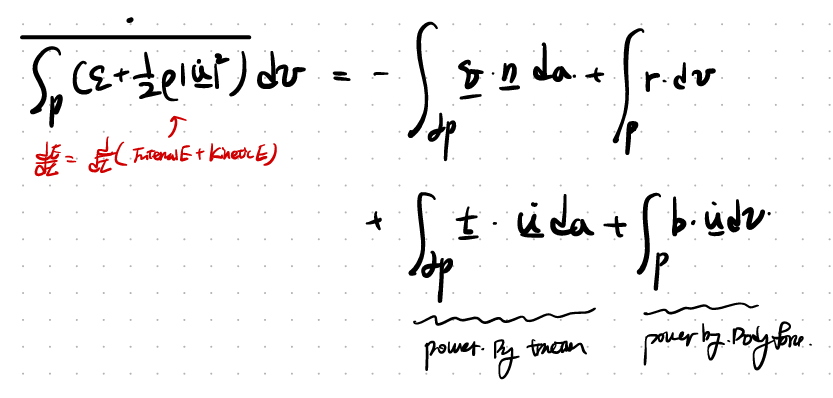 ∫_P (ε + ½ρ|u̇|²) dv = − ∫_∂P q · n da + ∫_P r · dv
dE/dt = d/dt (Internal E + Kinetic E)
+ ∫_∂P t · u̇ da + ∫_P b · u̇ dv
power. By traction power by. Body force.